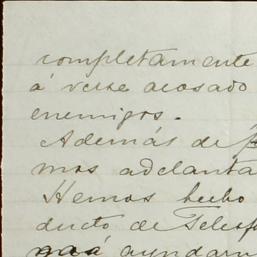 completamente
á verse acosado
enemigos.
Además de
mos adelanta
Hemos hecho
ducto de Telesf
ayudam